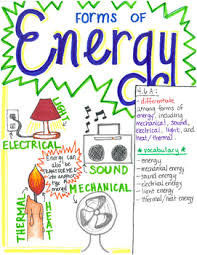 FORMS OF
Energy
4.6A:
- differentiate
among forms of
energy, including
mechanical, sound,
electrical, light, and
heat/thermal.
LIGHT
ELECTRICAL
SOUND
MECHANICAL
Energy can
also be
TRANSFORMED
into another
type of
energy!
THERMAL
HEAT
*vocabulary*
- energy
- mechanical energy
- sound energy
- electrical energy
- light energy
- thermal/heat energy